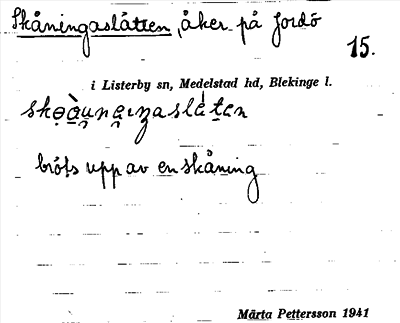 Skåningaslåtten, åker på Jordö
15.
i Listerby sn, Medelstad hd, Blekinge l.
bröts upp av en skåning
Märta Pettersson 1941